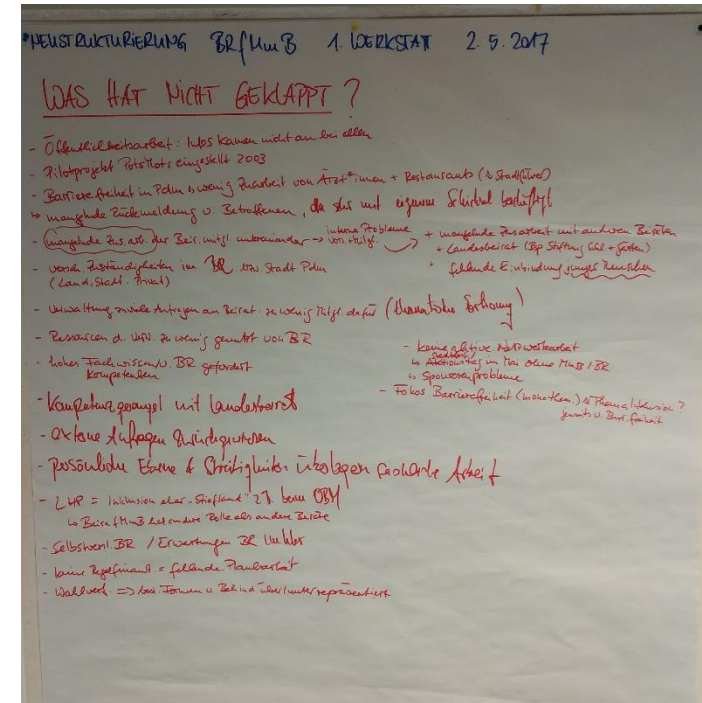 NEUSTRUKTURIERUNG BR f MmB 1. WERKSTATT 2.5.2017
WAS HAT NICHT GEKLAPPT ?
- Öffentlichkeitsarbeit: Infos kamen nicht an bei allen
- Pilotprojekt eingestellt 2003
- Barrierefreiheit in Pdm wenig Zuarbeit von Ärzt*innen + Restaurants (Stadtführer)
↳ mangelnde Rückmeldung v. Betroffenen, da sehr mit eigenem Schicksal beschäftigt
- mangelnde Zus.arb. der Beir.mitgl. untereinander → interne Probleme
von Mitgl.
+ mangelnde Zusarbeit mit anderen Beiräten
+ Landesbeirat (Bsp Stiftung Schl. + Gärten)
+ fehlende Einbindung junger Menschen
- versch. Zuständigkeiten im BR bzw. Stadt Pdm
(Land, Stadt, Privat)
- Verwaltung zuviele Anfragen an Beirat. zu wenig Mitgl. dafür (thematische )
- Ressourcen d. Verw. zu wenig genutzt von BR
- hohes Fachwissen v. BR gefordert
Kompetenzen
- keine aktive Netzwerkarbeit
↳ Aktionstag im Mai ohne MmB / BR
↳ Sponsorenprobleme
- Fokus Barrierefreiheit (monothem.) Thema Inklusion?
jenseits v. Barr.freiheit
- Kompetenzgerangel mit Landesbeirat
- externe Anfragen zurückgewiesen
- persönliche & Streitigkeiten überlagern fachliche Arbeit
- LHP = Inklusion eher "Stiefkind" z.B. beim OBM
↳ Beirat MmB hat andere Rolle als andere Beiräte
- Selbstverst. BR / Erwartungen BR unklar
- keine Regelfinanz = fehlende Planbarkeit
- Wahlverf. => bei Formen v. Behind über/unterrepräsentiert